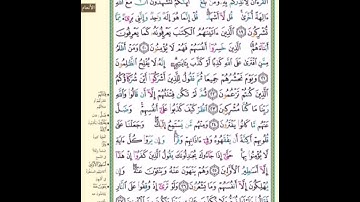 الأنعام
القرءان لأنذركم به ومن بلغ أئنكم لتشهدون
ءالهة أخرى قل لا أشهد قل إنما هو إله واحد وإننى برىء مما
تشركون ١٩ الذين ءاتينهم الكتب يعرفونه كما يعرفون
أبناءهم الذين خسروا أنفسهم فهم لا يؤمنون ٢٠ ومن أظلم
ممن افترى على الله كذبا أو كذب بـايته إنه لا يفلح الظلمون
٢١ ويوم نحشرهم جميعا ثم نقول للذين أشركوا أين شركاؤكم
الذين كنتم تزعمون ٢٢ ثم لم تكن فتنتهم إلا أن قالوا والله
ربنا ما كنا مشركين ٢٣ انظر كيف كذبوا على أنفسهم وضل
عنهم ما كانوا يفترون ٢٤ ومنهم من يستمع إليك وجعلنا على
قلوبهم أكنة أن يفقهوه وفى ءاذانهم وقرا وإن يروا كل ءاية
لا يؤمنوا بها حتى إذا جاءوك يجدلونك يقول الذين كفروا إن هذا
إلا أسطير الأولين ٢٥ وهم ينهون عنه وينـون عنه وإن
يهلكون إلا أنفسهم وما يشعرون ٢٦ ولو ترى إذ وقفوا على النار